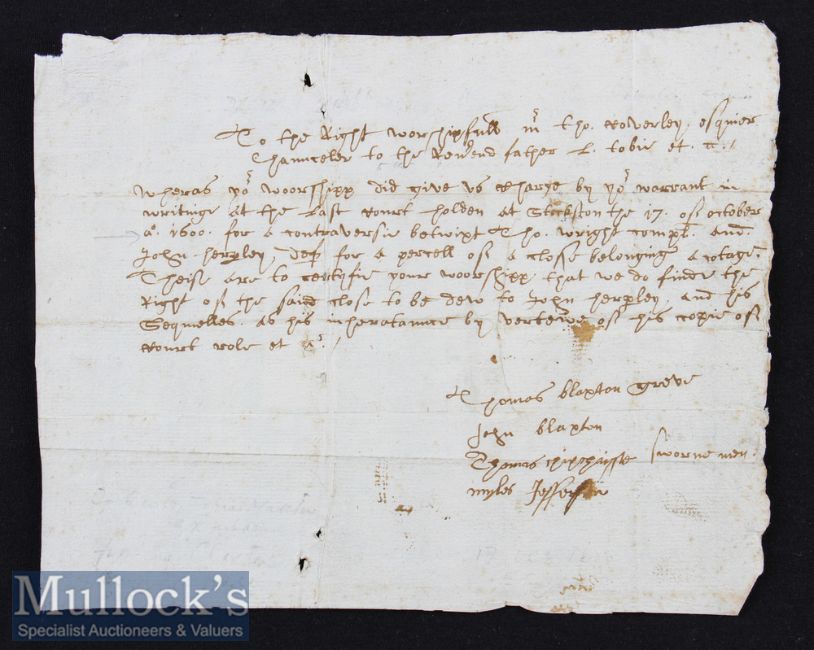 To the Right worshipfull mr tho. Koverley, esquier
Chaunceler to the Reverend father
Wheras yor woorshipp did give us charge by yor warrant in
writinge at the last Court holden at Stockton the 17. of october
ao. 1600. for a contraversie betwixt Tho. wright compl. and
John herpley, def for a percell of a closse belonging a cotage.
Theise are to certifie your woorshipp, that we do finde the
Right of the said close to be dew to John herpley, and his
Sequelles. as his inheratance by vertewe of his copie of
court role et c.
Thomas blaxton greve
John blaxton
Thomas sworne men.
myles Jefferson
Mullock's
Specialist Auctioneers & Valuers